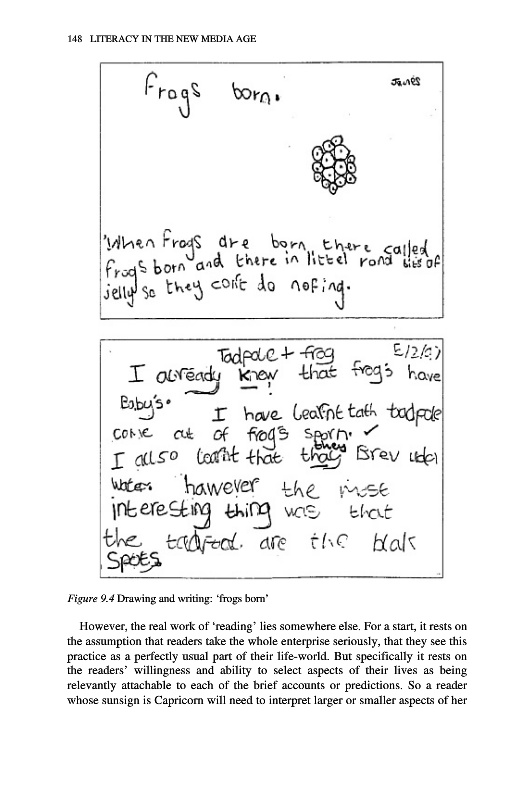 148 LITERACY IN THE NEW MEDIA AGE
frogs born.
James
When frogs are born there called
frogs born and there in littel rond bits of
jelly so they con't do nofing.
Tadpole + frog
I already knew that frog's have
Baby's.
I have learnt tath tadpole
come out of frog's sporn. ✓
I allso learnt that they
thay Brev uder
water. however the most
interesting thing was that
the tadpool. are the blak
spots
Figure 9.4 Drawing and writing: ‘frogs born’
However, the real work of ‘reading’ lies somewhere else. For a start, it rests on
the assumption that readers take the whole enterprise seriously, that they see this
practice as a perfectly usual part of their life-world. But specifically it rests on
the readers’ willingness and ability to select aspects of their lives as being
relevantly attachable to each of the brief accounts or predictions. So a reader
whose sunsign is Capricorn will need to interpret larger or smaller aspects of her